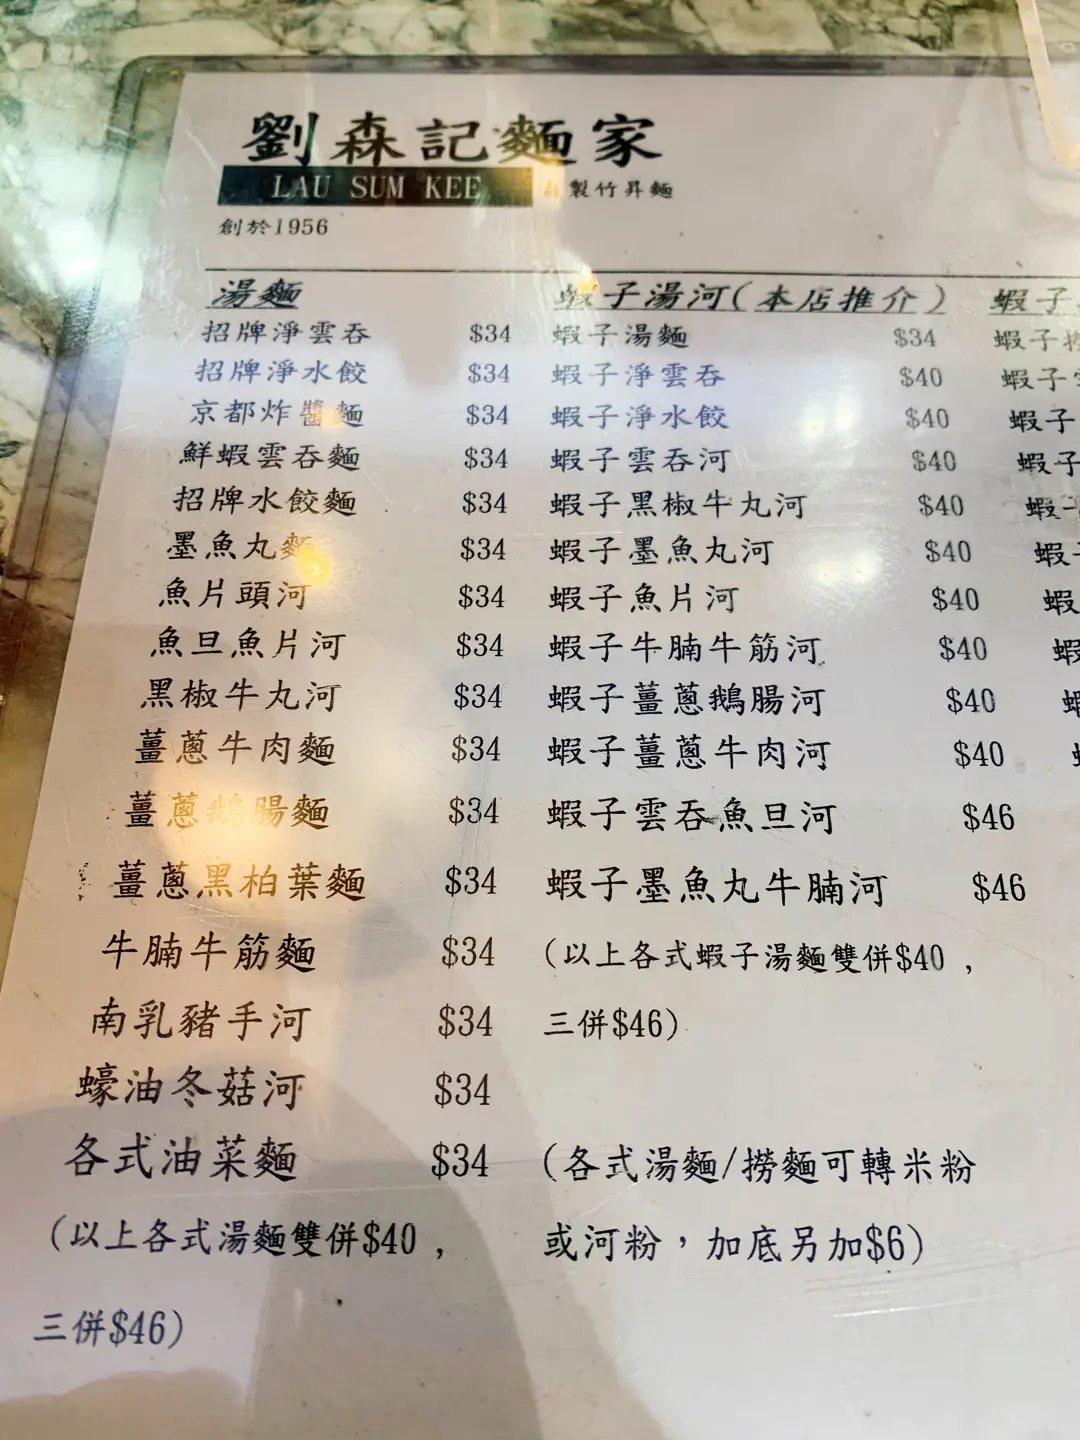 劉森記麵家
LAU SUM KEE 製竹昇麵
創於1956
湯麵
招牌淨雲吞 $34
招牌淨水餃 $34
京都炸醬麵 $34
鮮蝦雲吞麵 $34
招牌水餃麵 $34
墨魚丸麵 $34
魚片頭河 $34
魚旦魚片河 $34
黑椒牛丸河 $34
薑蔥牛肉麵 $34
薑蔥鵝腸麵 $34
薑蔥黑柏葉麵 $34
牛腩牛筋麵 $34
南乳豬手河 $34
蠔油冬菇河 $34
各式油菜麵 $34
(以上各式湯麵雙併$40 ,
三併$46)
蝦子湯河(本店推介)
蝦子湯麵 $34
蝦子淨雲吞 $40
蝦子淨水餃 $40
蝦子雲吞河 $40
蝦子黑椒牛丸河 $40
蝦子墨魚丸河 $40
蝦子魚片河 $40
蝦子牛腩牛筋河 $40
蝦子薑蔥鵝腸河 $40
蝦子薑蔥牛肉河 $40
蝦子雲吞魚旦河 $46
蝦子墨魚丸牛腩河 $46
(以上各式蝦子湯麵雙併$40 ,
三併$46)
(各式湯麵/撈麵可轉米粉
或河粉，加底另加$6)
蝦子
蝦子撈
蝦子
蝦子
蝦子
蝦子
蝦
蝦
蝦